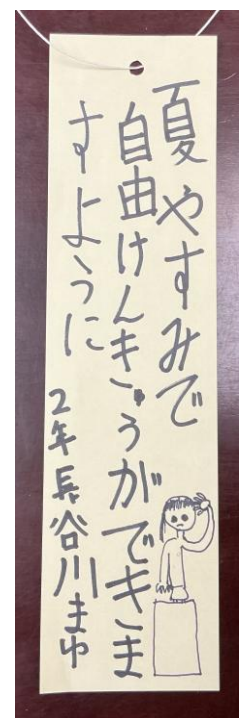 夏やすみで
自由けんきゅうができま
すように
2年長谷川まゆ